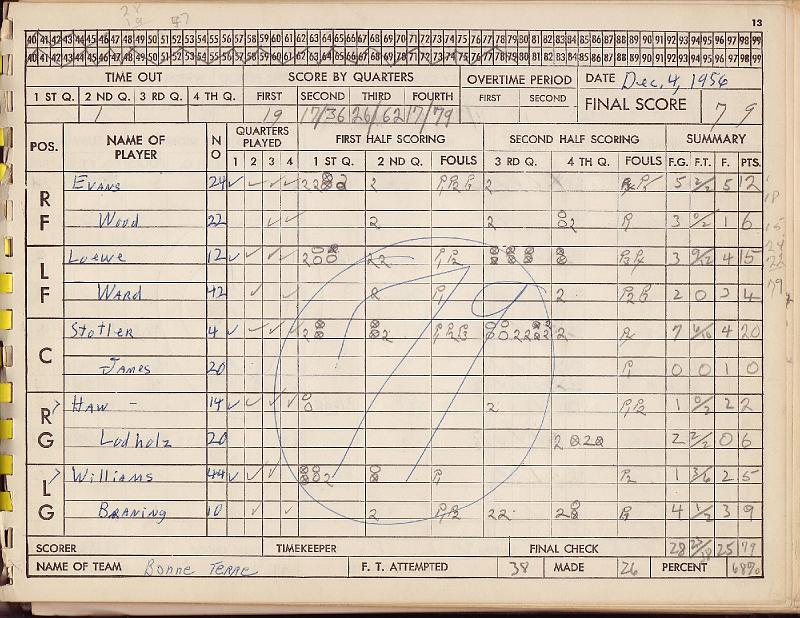 13
40 41 42 43 44 45 46 47 48 49 50 51 52 53 54 55 56 57 58 59 60 61 62 63 64 65 66 67 68 69 70 71 72 73 74 75 76 77 78 79 80 81 82 83 84 85 86 87 88 89 90 91 92 93 94 95 96 97 98 99
40 41 42 43 44 45 46 47 48 49 50 51 52 53 54 55 56 57 58 59 60 61 62 63 64 65 66 67 68 69 70 71 72 73 74 75 76 77 78 79 80 81 82 83 84 85 86 87 88 89 90 91 92 93 94 95 96 97 98 99
TIME OUT SCORE BY QUARTERS OVERTIME PERIOD DATE Dec, 4, 1956
1 ST Q. 2 ND Q. 3 RD Q. 4 TH Q. FIRST SECOND THIRD FOURTH FIRST SECOND FINAL SCORE 79
1 19 17/36 26/62 17/79
POS. NAME OF PLAYER NO QUARTERS PLAYED FIRST HALF SCORING SECOND HALF SCORING SUMMARY
1 2 3 4 1 ST Q. 2 ND Q. FOULS 3 RD Q. 4 TH Q. FOULS F.G. F.T. F. PTS.
RF Evans 24 2 2 2 2 2 5 2/2 5 12
Wood 22 2 2 2 3 0/2 1 6
LF Loewe 12 2 2 2 3 9/12 4 15
Ward 42 2 2 2 0 3 4
C Stotler 4 2 2 2 2 2 2 7 6/10 4 20
James 20 0 0 1 0
RG Haw - 14 2 1 0/2 2 2
Lodholz 20 2 2 2 2/2 0 6
LG Williams 44 2 1 3/6 2 5
Braning 10 2 2 2 2 4 1/2 3 9
79
SCORER TIMEKEEPER FINAL CHECK 28 23/38 25 79
NAME OF TEAM Bonne Terre F. T. ATTEMPTED 38 MADE 26 PERCENT 68%